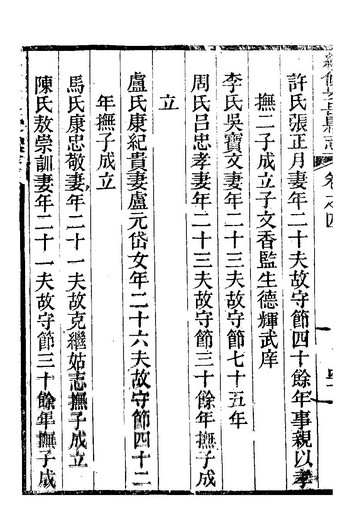 卷之四
許氏張正月妻年二十夫故守節四十餘年事親以孝
撫二子成立子文香監生德輝武庠
李氏吳寶文妻年二十三夫故守節七十五年
周氏呂忠孝妻年二十三夫故守節三十餘年撫子成
立
盧氏康紀貴妻盧元岱女年二十六夫故守節四十二
年撫子成立
馬氏康忠敬妻年二十一夫故克繼姑志撫子成立
陳氏敖崇訓妻年二十一夫故守節三十餘年撫子成